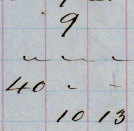 9
" " "
40 " "
10 13